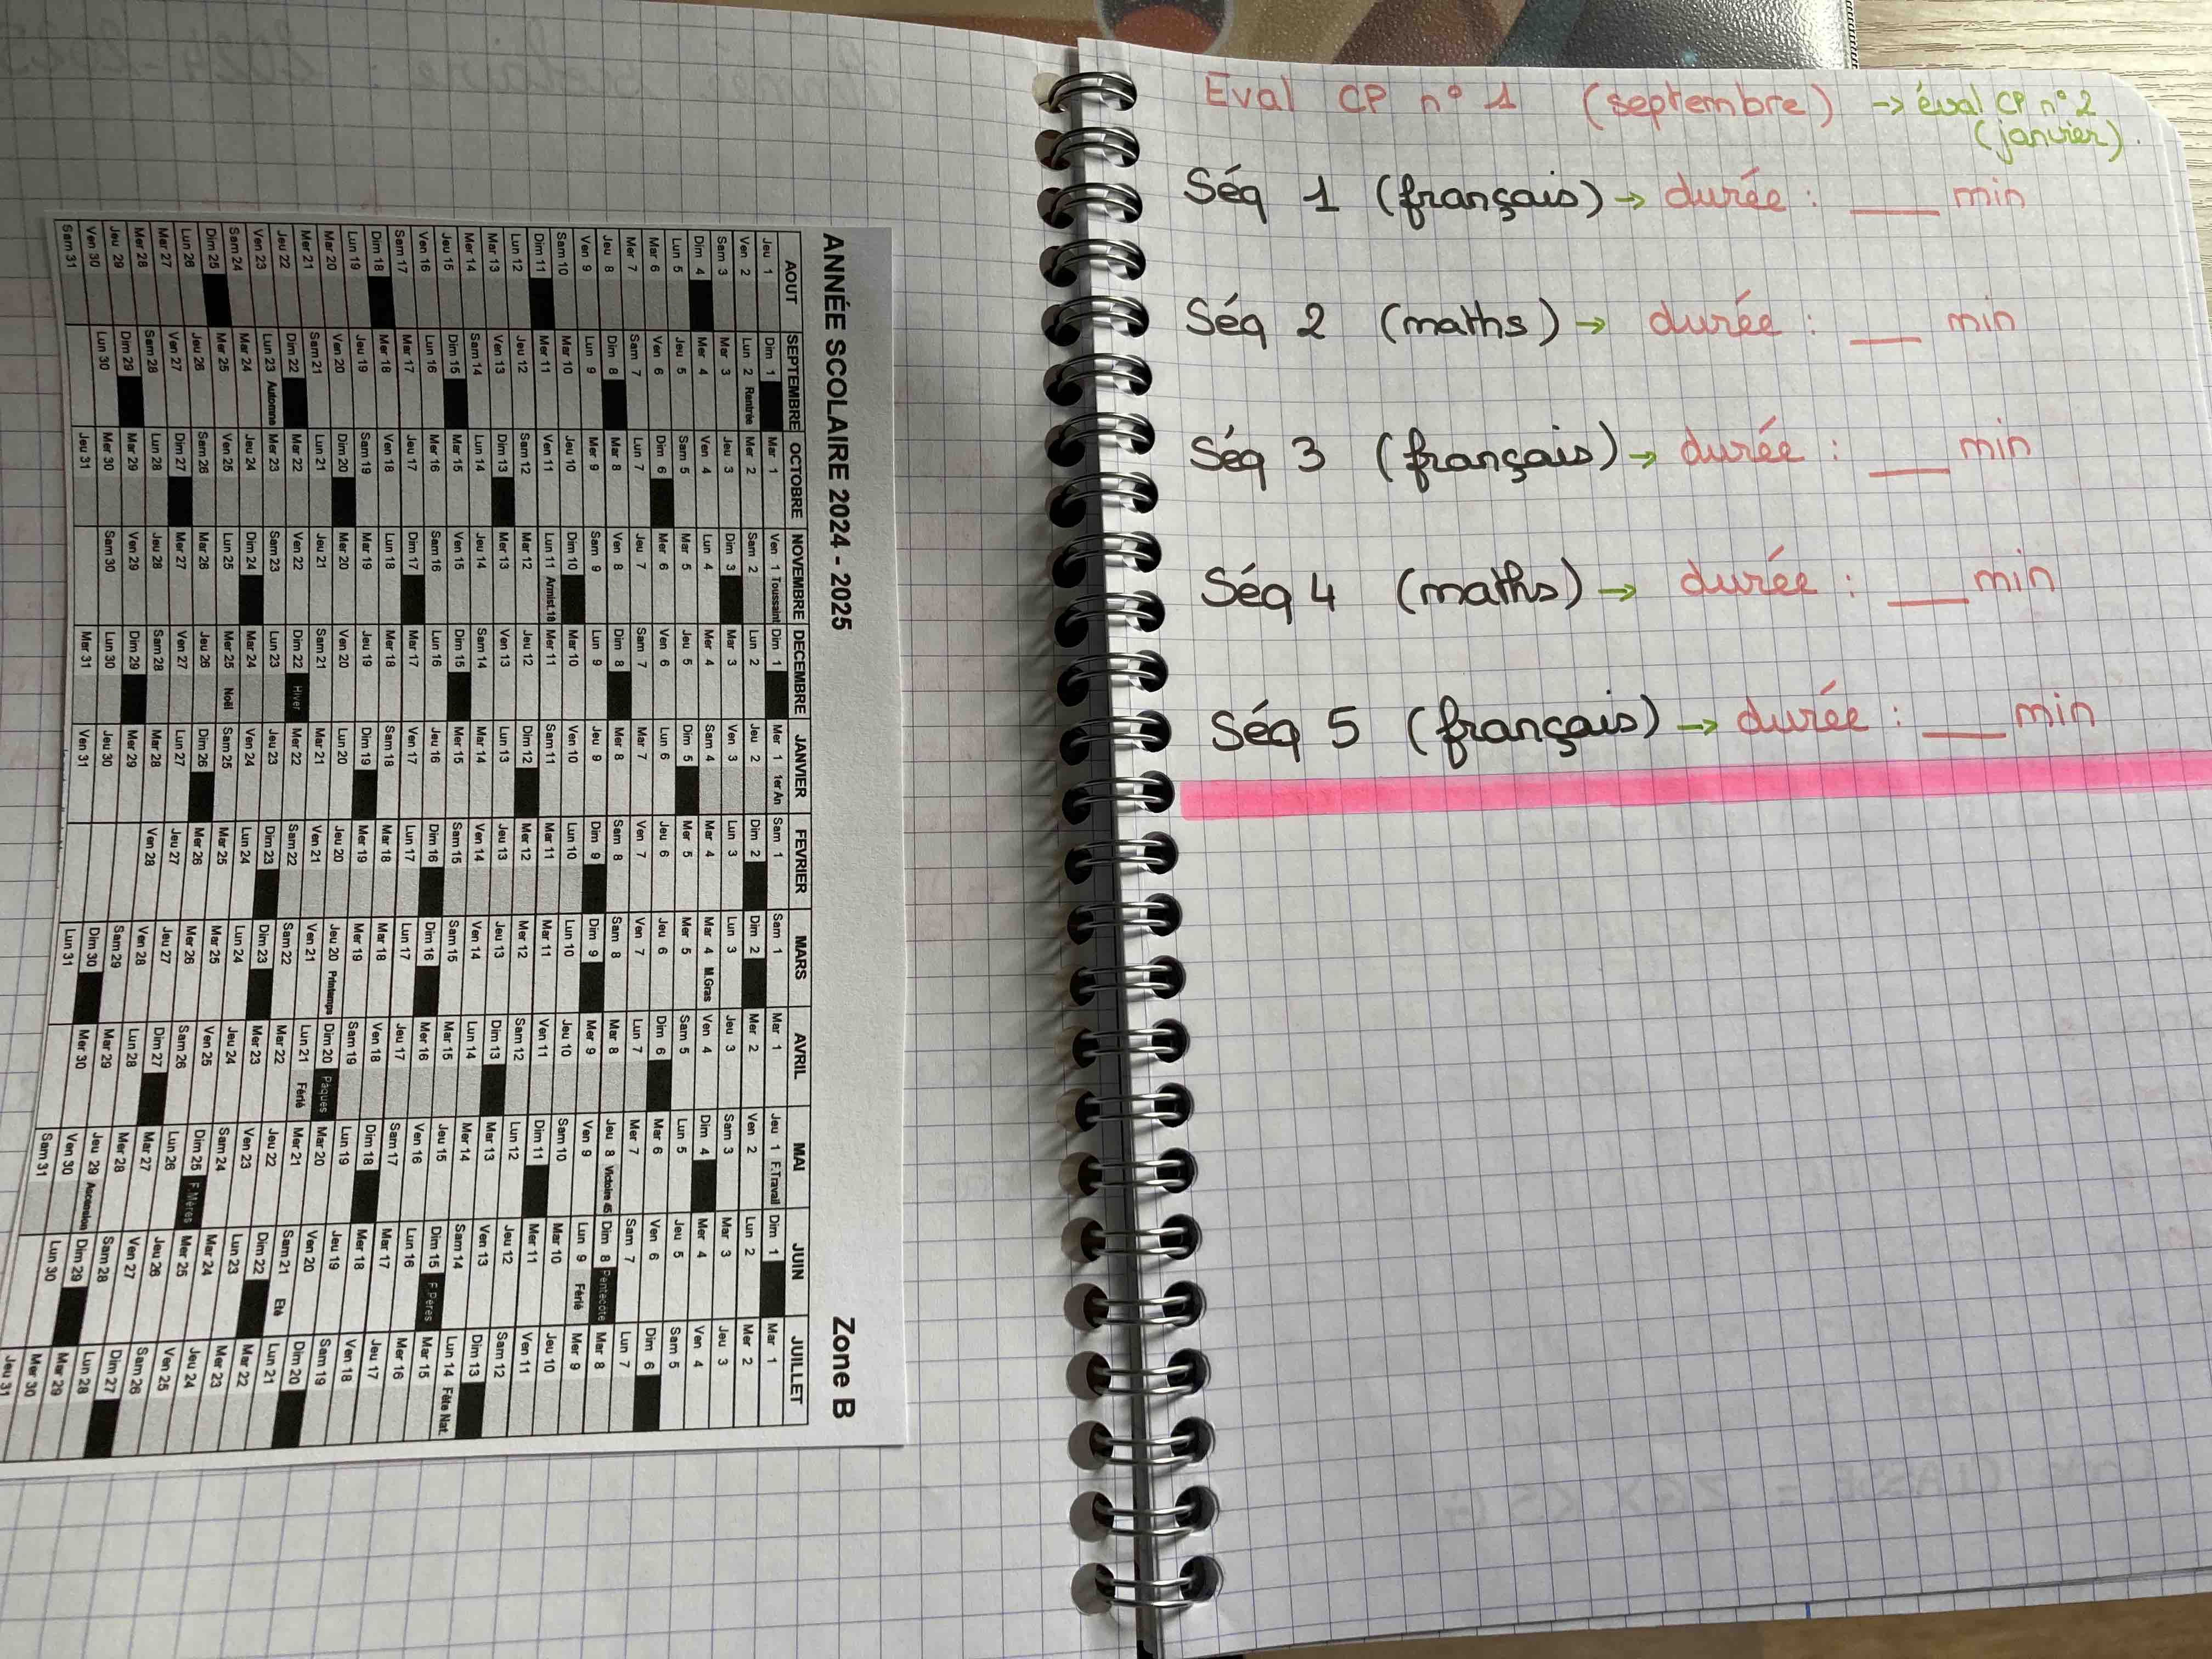 ANNÉE SCOLAIRE 2024 - 2025 Zone B
AOUT SEPTEMBRE OCTOBRE NOVEMBRE DECEMBRE JANVIER FEVRIER MARS AVRIL MAI JUIN JUILLET
Jeu 1 Dim 1 Mar 1 Ven 1 Toussaint Dim 1 Mer 1 1er An Sam 1 Sam 1 Mar 1 Jeu 1 F.Travail Dim 1 Mar 1
Ven 2 Lun 2 Rentrée Mer 2 Sam 2 Lun 2 Jeu 2 Dim 2 Dim 2 Mer 2 Ven 2 Lun 2 Mer 2
Sam 3 Mar 3 Jeu 3 Dim 3 Mar 3 Ven 3 Lun 3 Lun 3 Jeu 3 Sam 3 Mar 3 Jeu 3
Dim 4 Mer 4 Ven 4 Lun 4 Mer 4 Sam 4 Mar 4 Mar 4 M.Gras Ven 4 Dim 4 Mer 4 Ven 4
Lun 5 Jeu 5 Sam 5 Mar 5 Jeu 5 Dim 5 Mer 5 Mer 5 Sam 5 Lun 5 Jeu 5 Sam 5
Mar 6 Ven 6 Dim 6 Mer 6 Ven 6 Lun 6 Jeu 6 Jeu 6 Dim 6 Mar 6 Ven 6 Dim 6
Mer 7 Sam 7 Lun 7 Jeu 7 Sam 7 Mar 7 Ven 7 Ven 7 Lun 7 Mer 7 Sam 7 Lun 7
Jeu 8 Dim 8 Mar 8 Ven 8 Dim 8 Mer 8 Sam 8 Sam 8 Mar 8 Jeu 8 Victoire 45 Dim 8 Pentecôte Mar 8
Ven 9 Lun 9 Mer 9 Sam 9 Lun 9 Jeu 9 Dim 9 Dim 9 Mer 9 Ven 9 Lun 9 Férié Mer 9
Sam 10 Mar 10 Jeu 10 Dim 10 Mar 10 Ven 10 Lun 10 Lun 10 Jeu 10 Sam 10 Mar 10 Jeu 10
Dim 11 Mer 11 Ven 11 Lun 11 Armist.18 Mer 11 Sam 11 Mar 11 Mar 11 Ven 11 Dim 11 Mer 11 Ven 11
Lun 12 Jeu 12 Sam 12 Mar 12 Jeu 12 Dim 12 Mer 12 Mer 12 Sam 12 Lun 12 Jeu 12 Sam 12
Mar 13 Ven 13 Dim 13 Mer 13 Ven 13 Lun 13 Jeu 13 Jeu 13 Dim 13 Mar 13 Ven 13 Dim 13
Mer 14 Sam 14 Lun 14 Jeu 14 Sam 14 Mar 14 Ven 14 Ven 14 Lun 14 Mer 14 Sam 14 Lun 14 Fête Nat.
Jeu 15 Dim 15 Mar 15 Ven 15 Dim 15 Mer 15 Sam 15 Sam 15 Mar 15 Jeu 15 Dim 15 F.Pères Mar 15
Ven 16 Lun 16 Mer 16 Sam 16 Lun 16 Jeu 16 Dim 16 Dim 16 Mer 16 Ven 16 Lun 16 Mer 16
Sam 17 Mar 17 Jeu 17 Dim 17 Mar 17 Ven 17 Lun 17 Lun 17 Jeu 17 Sam 17 Mar 17 Jeu 17
Dim 18 Mer 18 Ven 18 Lun 18 Mer 18 Sam 18 Mar 18 Mar 18 Ven 18 Dim 18 Mer 18 Ven 18
Lun 19 Jeu 19 Sam 19 Mar 19 Jeu 19 Dim 19 Mer 19 Mer 19 Sam 19 Lun 19 Jeu 19 Sam 19
Mar 20 Ven 20 Dim 20 Mer 20 Ven 20 Lun 20 Jeu 20 Jeu 20 Printemps Dim 20 Pâques Mar 20 Ven 20 Dim 20
Mer 21 Sam 21 Lun 21 Jeu 21 Sam 21 Mar 21 Ven 21 Ven 21 Lun 21 Férié Mer 21 Sam 21 Eté Lun 21
Jeu 22 Dim 22 Mar 22 Ven 22 Dim 22 Hiver Mer 22 Sam 22 Sam 22 Mar 22 Jeu 22 Dim 22 Mar 22
Ven 23 Lun 23 Automne Mer 23 Sam 23 Lun 23 Jeu 23 Dim 23 Dim 23 Mer 23 Ven 23 Lun 23 Mer 23
Sam 24 Mar 24 Jeu 24 Dim 24 Mar 24 Ven 24 Lun 24 Lun 24 Jeu 24 Sam 24 Mar 24 Jeu 24
Dim 25 Mer 25 Ven 25 Lun 25 Mer 25 Noël Sam 25 Mar 25 Mar 25 Ven 25 Dim 25 F.Mères Mer 25 Ven 25
Lun 26 Jeu 26 Sam 26 Mar 26 Jeu 26 Dim 26 Mer 26 Mer 26 Sam 26 Lun 26 Jeu 26 Sam 26
Mar 27 Ven 27 Dim 27 Mer 27 Ven 27 Lun 27 Jeu 27 Jeu 27 Dim 27 Mar 27 Ven 27 Dim 27
Mer 28 Sam 28 Lun 28 Jeu 28 Sam 28 Mar 28 Ven 28 Ven 28 Lun 28 Mer 28 Sam 28 Lun 28
Jeu 29 Dim 29 Mar 29 Ven 29 Dim 29 Mer 29 Sam 29 Mar 29 Jeu 29 Ascension Dim 29 Mar 29
Ven 30 Lun 30 Mer 30 Sam 30 Lun 30 Jeu 30 Dim 30 Mer 30 Ven 30 Lun 30 Mer 30
Sam 31 Jeu 31 Mar 31 Ven 31 Lun 31 Sam 31 Jeu 31
Eval CP n° 1 (septembre) → éval CP n° 2
(janvier).
Séq 1 (français) → durée : ___ min
Séq 2 (maths) → durée : ___ min
Séq 3 (français) → durée : ___ min
Séq 4 (maths) → durée : ___ min
Séq 5 (français) → durée : ___ min